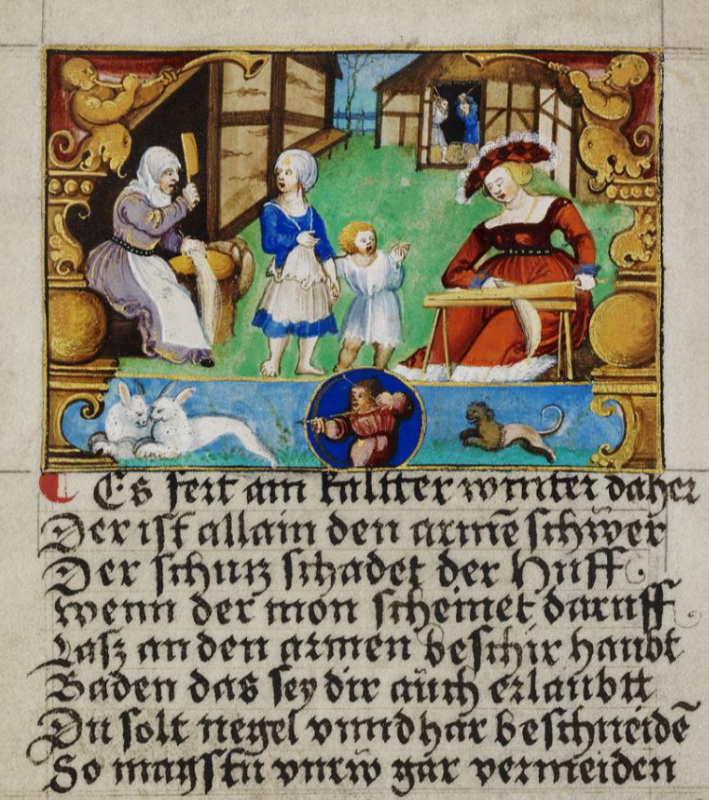 Es fert am kaltter winter daher
Der ist allain den armē schwer
Der schutz schadet der Huff
wenn der mon scheinet daruff
Lasz an den armen beschir haubt
Baden das sey dir auch erlaubtt
Du solt negel vnnd har beschneidē
So magstu vnrw gar vermeiden